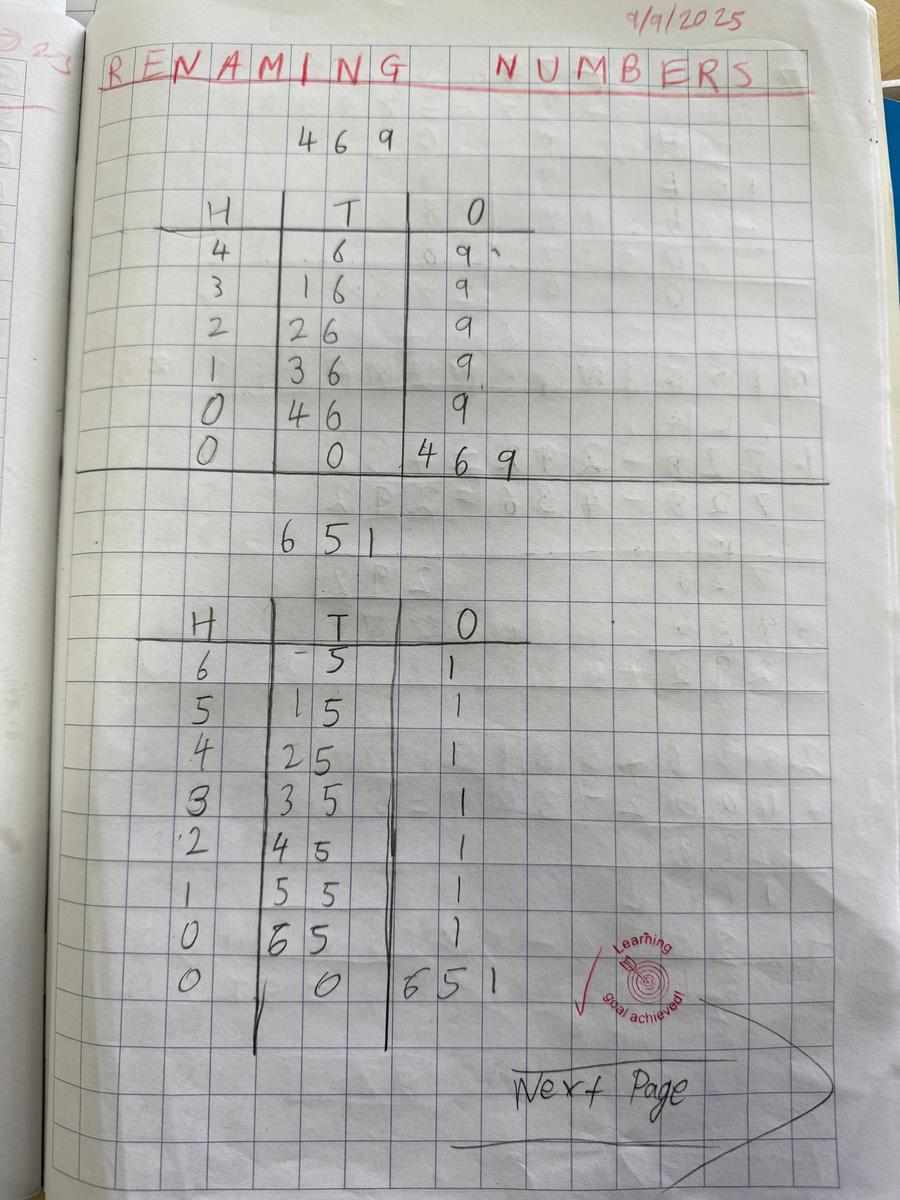 9/9/2025
RENAMING NUMBERS
469
H T O
4 6 9
3 16 9
2 26 9
1 36 9
0 46 9
0 0 469
651
H T O
6 5 1
5 15 1
4 25 1
3 35 1
2 45 1
1 55 1
0 65 1
0 0 651
Learning
goal achieved!
Next Page